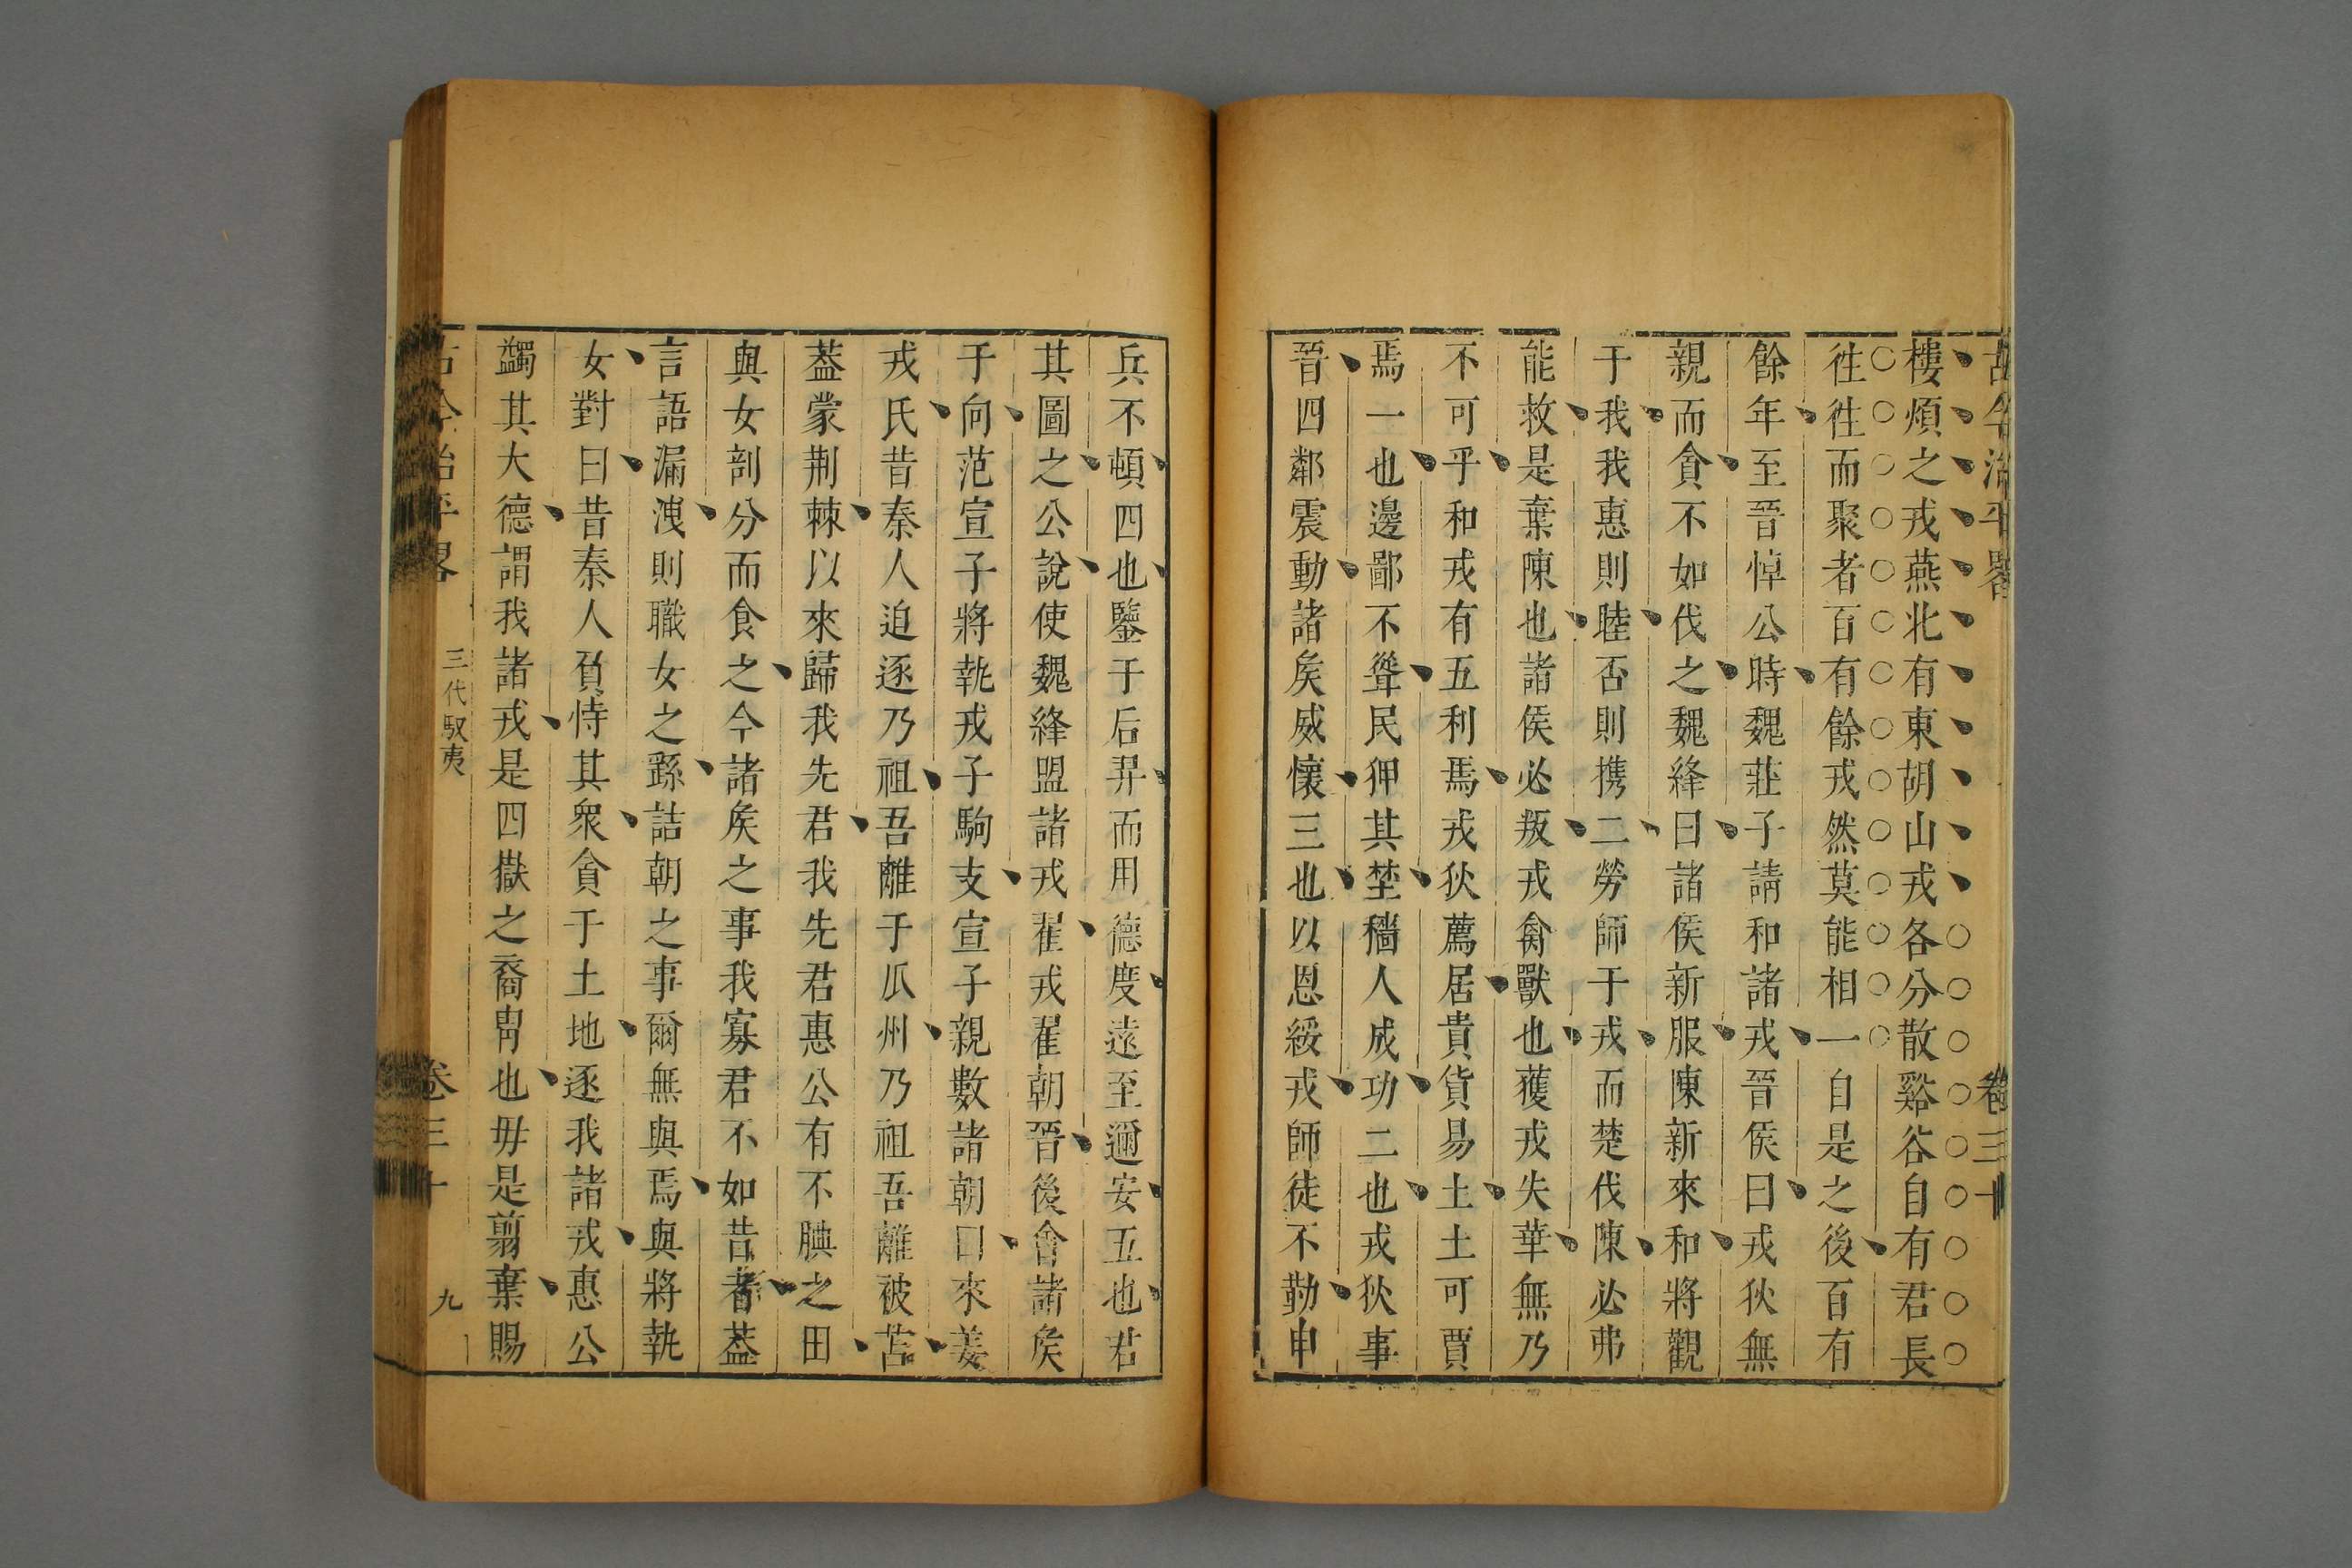 古今治平畧 卷三十
樓煩之戎燕北有東胡山戎各分散谿谷自有君長
徃徃而聚者百有餘戎然莫能相一自是之後百有
餘年至晉悼公時魏莊子請和諸戎晉侯曰戎狄無
親而貪不如伐之魏絳曰諸侯新服陳新來和將觀
于我我惠則睦否則携二勞師于戎而楚伐陳必弗
能救是棄陳也諸侯必叛戎禽獸也獲戎失華無乃
不可乎和戎有五利焉戎狄薦居貴貨易土土可賈
焉一也邊鄙不聳民狎其埜穡人成功二也戎狄事
晉四鄰震動諸矦威懷三也以恩綏戎師徒不勤申
兵不頓四也鑒于后羿而用德度遠至邇安五也君
其圖之公說使魏絳盟諸戎翟戎翟朝晉後會諸矦
于向范宣子將執戎子駒支宣子親數諸朝曰來姜
戎氏昔秦人迫逐乃祖吾離于瓜州乃祖吾離被苫
葢蒙荆棘以來歸我先君我先君惠公有不腆之田
與女剖分而食之今諸矦之事我寡君不如昔者葢
言語漏洩則職女之繇詰朝之事爾無與焉與將執
女對曰昔秦人負恃其衆貪于土地逐我諸戎惠公
蠲其大德謂我諸戎是四嶽之裔冑也毋是翦棄賜
古今治平畧 三代馭夷 卷三十 九